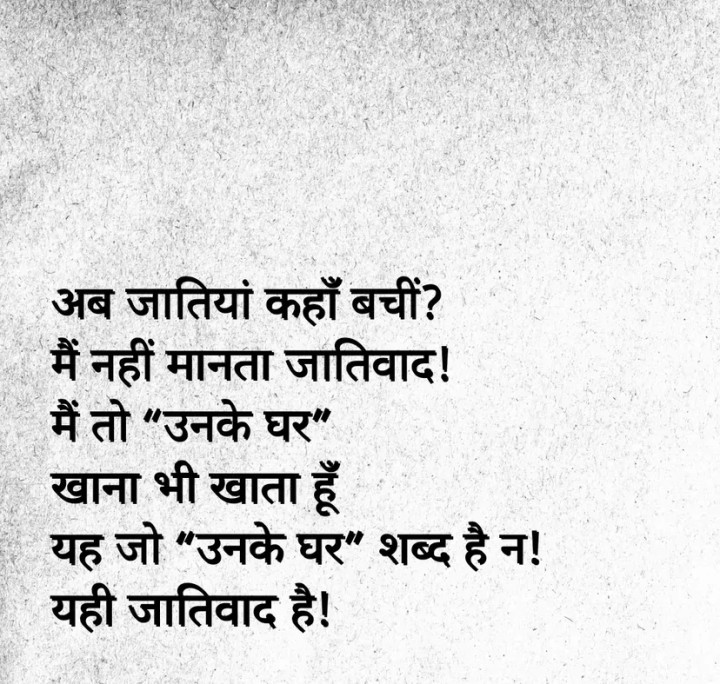 अब जातियां कहाँ बचीं?
मैं नहीं मानता जातिवाद!
मैं तो “उनके घर”
खाना भी खाता हूँ
यह जो “उनके घर” शब्द है न!
यही जातिवाद है!